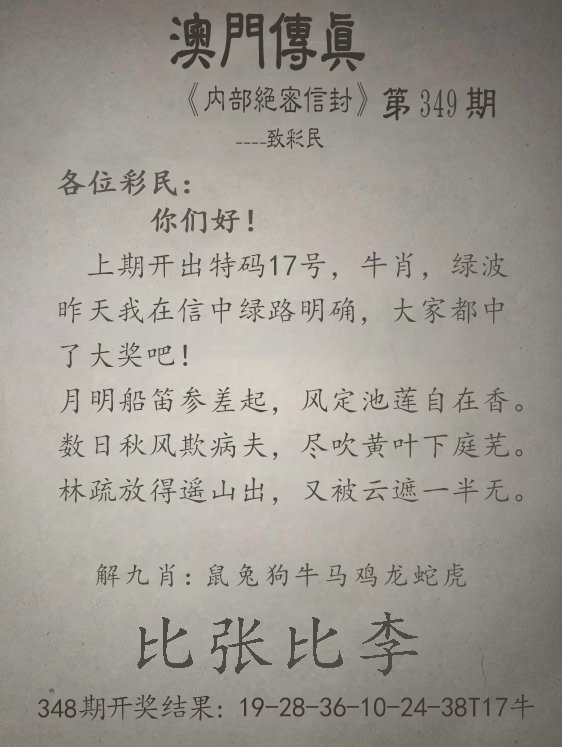 澳門傳眞
《内部絕密信封》第349期
----致彩民
各位彩民：
你们好！
上期开出特码17号，牛肖，绿波
昨天我在信中绿路明确，大家都中
了大奖吧！
月明船笛参差起，风定池莲自在香。
数日秋风欺病夫，尽吹黄叶下庭芜。
林疏放得遥山出，又被云遮一半无。
解九肖：鼠兔狗牛马鸡龙蛇虎
比张比李
348期开奖结果：19-28-36-10-24-38T17牛